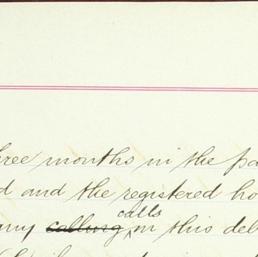 hree months in the pa
d and the registered ho
any calls on this deb